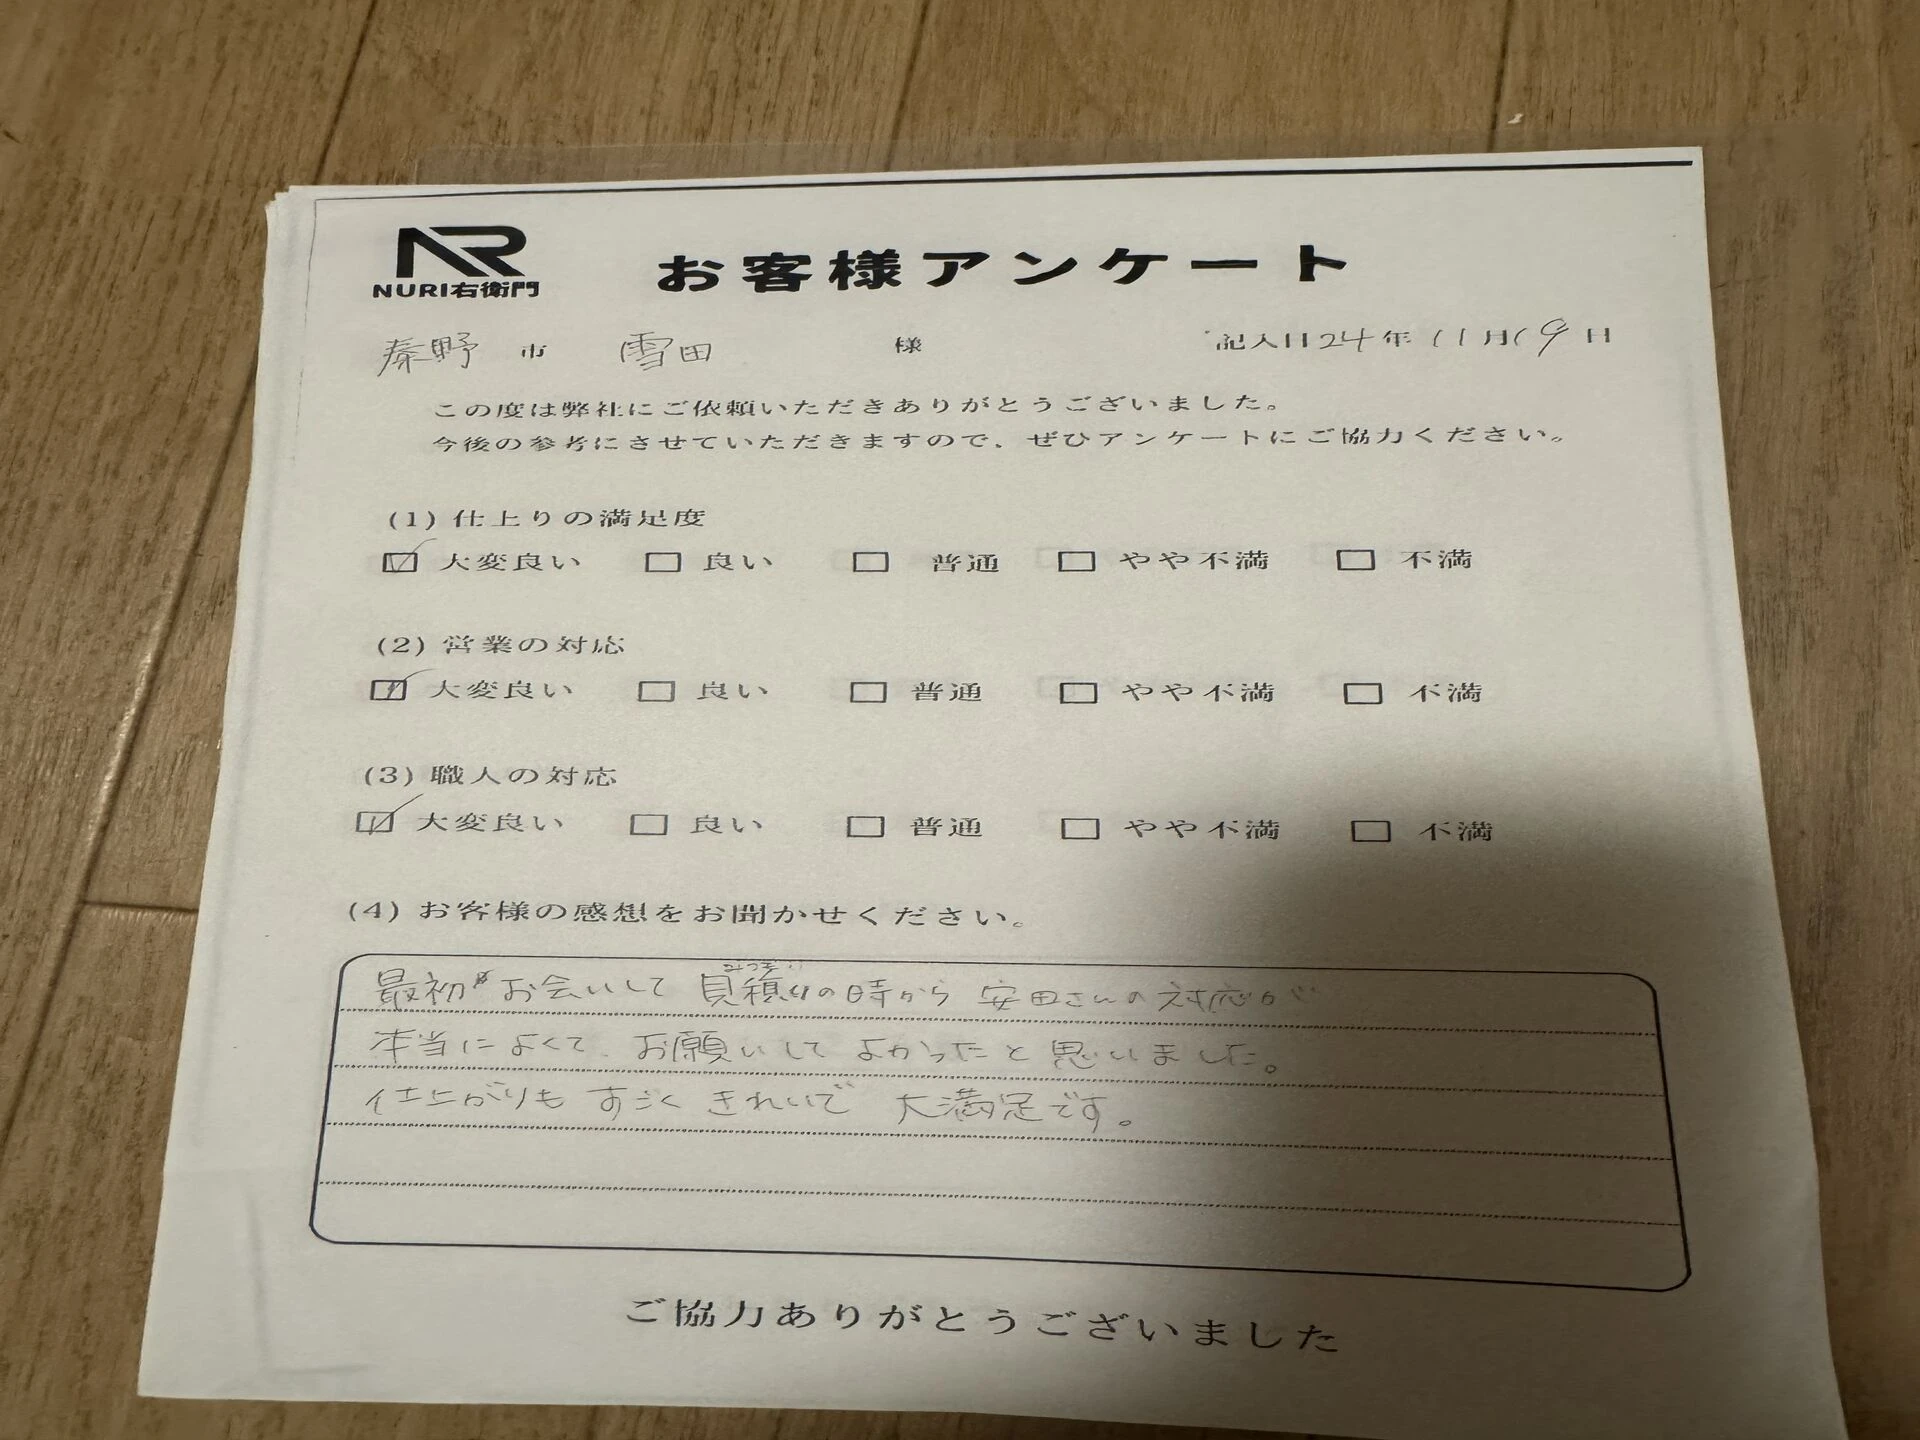 NR
NURI右衛門
お客様アンケート
秦野 市 雪田 様 記入日 24年 11月19日
この度は弊社にご依頼いただきありがとうございました。
今後の参考にさせていただきますので、ぜひアンケートにご協力ください。
(1) 仕上りの満足度
☑ 大変良い □ 良い □ 普通 □ やや不満 □ 不満
(2) 営業の対応
☑ 大変良い □ 良い □ 普通 □ やや不満 □ 不満
(3) 職人の対応
☑ 大変良い □ 良い □ 普通 □ やや不満 □ 不満
(4) お客様の感想をお聞かせください。
最初お会いして 見積りの時から 安田さんの対応が
本当によくて、お願いして よかったと思いました。
仕上がりも すごく きれいで 大満足です。
ご協力ありがとうございました